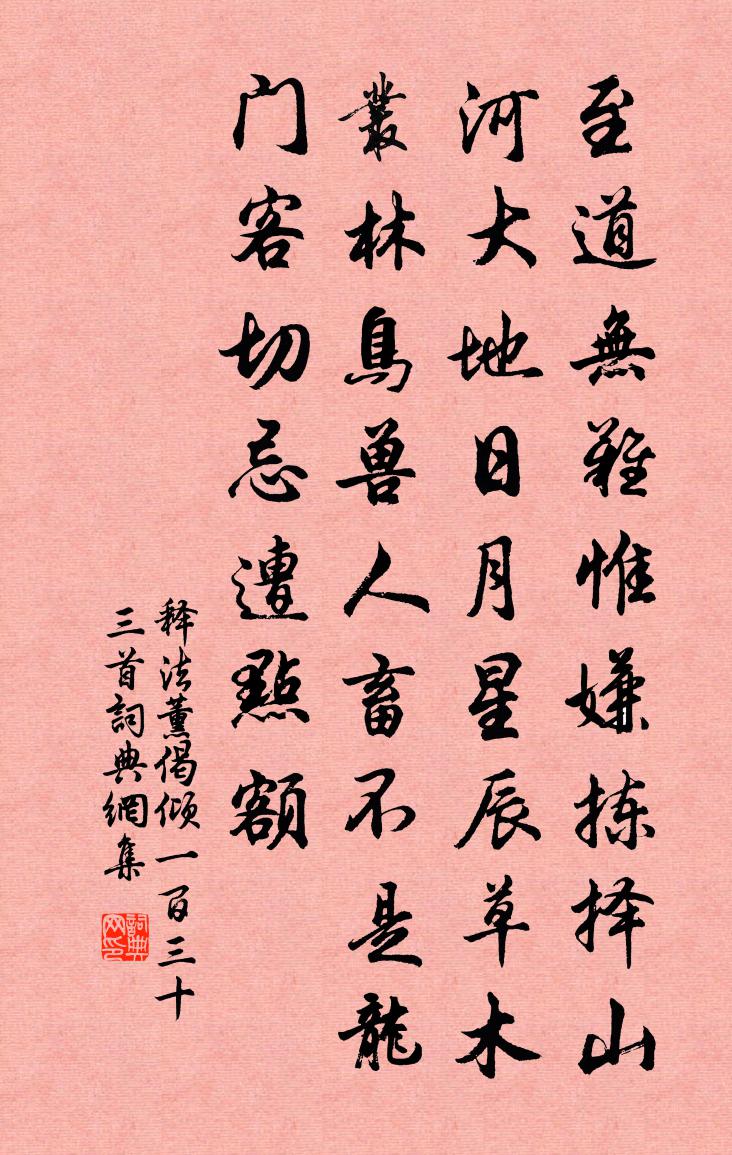 至道無難惟嫌拣择山
河大地日月星辰草木
叢林鳥兽人畜不是龍
门客切忌遭點額
释法薰偈颂一百三十
三首詞典網集
詞典网印